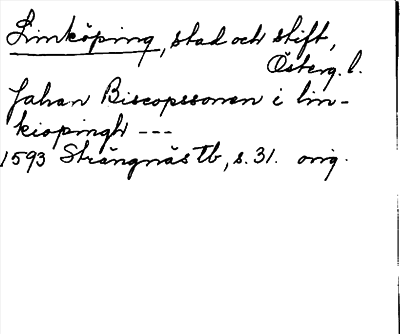 Linköping, stad och stift,
Österg. l.
Johan Biscopssonen i lin-
kiopingh ---
1593 Strängnäs tb, s. 31. orig.